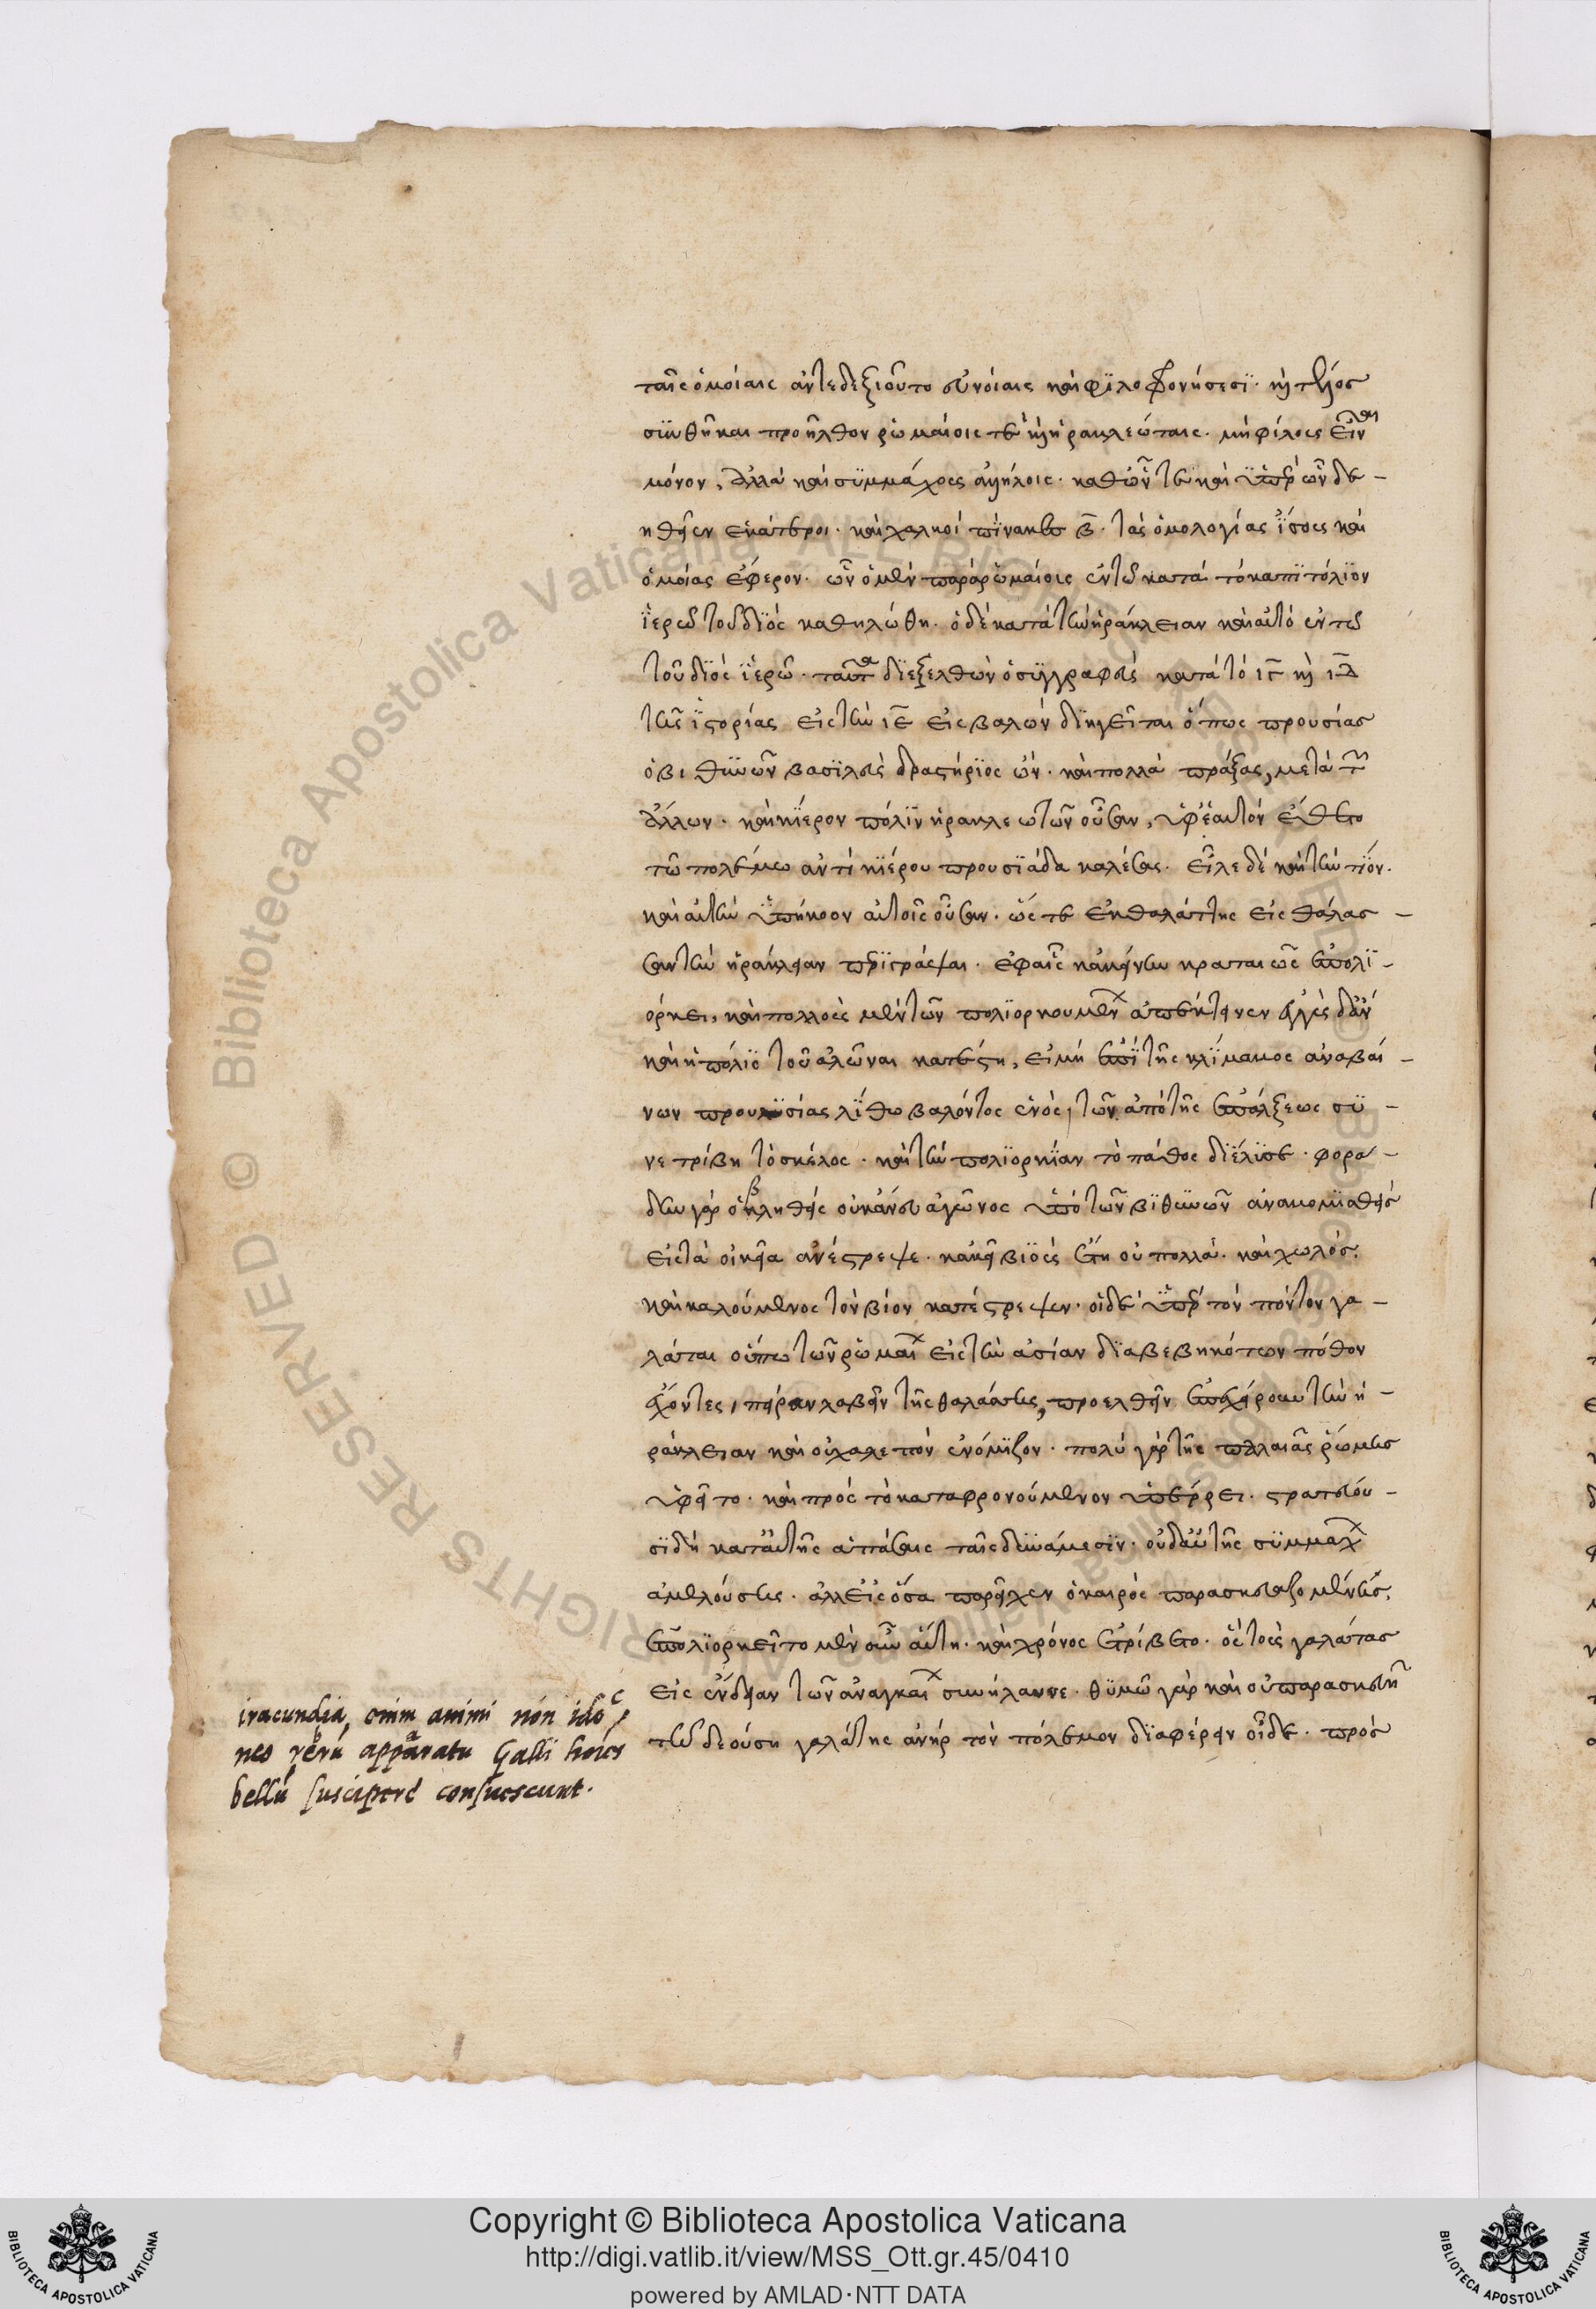 ταῖς ὁμοίαις ἀντεδεξιοῦτο εὐνοίαις καὶ φϊλοφρονήσεσϊ· καὶ τέλος
σϋνθῆκαι προῆλθον ῥωμαίοις τε καὶ ἡρακλεώταις· μὴ φίλους εἶναι
μόνον, ἀλλὰ καὶ σϋμμάχους ἀλλήλοις· καθ' ὧν τε καὶ ὑπὲρ ὧν δε-
ηθεῖεν ἑκάτεροι· καὶ χαλκοὶ πϊνακες β̅· τὰς ὁμολογίας ἴσους καὶ
ὁμοίας ἔφερον· ὧν ὁ μὲν παρὰ ῥωμαίοις ἐν τῷ κατὰ τὸ καπϊτόλϊον
ἱερῷ τοῦ δϊὸς καθηλώθη· ὁ δὲ κατὰ τὴν ἡράκλειαν καὶ αὐτὸ ἐν τῷ
τοῦ δϊὸς ἱερῷ· ταῦτα δϊεξελθὼν ὁ σϋγγραφεὺς κατὰ τὸ ιγ̅ καὶ ιδ̅
τῆς ἱστορίας εἰς τὴν ιε̅ εἰσβαλὼν δϊηγεῖται ὅπως προυσίας
ὁ βιθϋνῶν βασϊλεὺς δραστήρϊος ὢν· καὶ πολλὰ πράξας, μετὰ τῶν
ἄλλων· καὶ κϊερον πόλϊν ἡρακλεωτῶν οὖσαν, ὑφ' ἑαυτὸν ἔθετο
τῷ πολέμῳ ἀντὶ κϊέρου προυσϊάδα καλέσας· εἷλε δὲ καὶ τὴν τῖον·
καὶ αὐτὴν ὑπήκοον αὐτοῖς οὖσαν· ὥς τε ἐκ θαλάττης εἰς θάλασ-
σαν τὴν ἡράκλειαν περϊγράψαι· ἐφ' αἷς κἀκείνην κραταιῶς ἐπολϊ-
όρκει, καὶ πολλοὺς μὲν τῶν πολϊορκουμένων ἀπέκτεινεν ἐγγὺς δ' ἂν
καὶ ἡ πόλϊς τοῦ ἁλῶναι κατέστη, εἰ μὴ ἐπὶ τῆς κλϊμακος ἀναβαί-
νων προυσίας λϊθῳ βαλόντος ἑνὸς, τῶν ἀπὸ τῆς ἐπάλξεως σϋ-
νετρίβη τὸ σκέλος· καὶ τὴν πολϊορκϊαν τὸ πάθος δϊέλϋσε· φορά-
δην γὰρ ὁ βληθεὶς οὐκ ἄνευ ἀγῶνος ὑπὸ τῶν βϊθϋνῶν ἀνακομϊσθεὶς
εἰς τὰ οἰκεῖα ἀνέστρεψε· κἀκεῖ βϊοὺς ἔτη οὐ πολλὰ· καὶ χωλὸς,
καὶ καλούμενος τὸν βίον κατέστρεψεν· οἱ δὲ ὑπὲρ τὸν πόντον γα-
λάται οὔπω τῶν ῥωμαίων εἰς τὴν ἀσίαν δϊαβεβηκότων πόθον
ἔχοντες, πεῖραν λαβεῖν τῆς θαλάσσης, προελθεῖν ἐπεχείρουν τὴν ἡ-
ράκλειαν καὶ οὐ χαλεπὸν ἐνόμϊζον· πολὺ γὰρ τῆς παλαιᾶς ῥώμης
ὑφεῖτο· καὶ πρὸς τὸ καταφρονούμενον ὑπέρρει· στρατεύου-
σϊ δὴ κατ' αὐτῆς ἁπάσαις ταῖς δϋνάμεσϊν· οὐδ' αὖ τῆς σϋμμαχίας
ἀμελούσης· ἀλλ' εἰς ὅσα παρεῖχεν ὁ καιρὸς παρασκευαζομένης,
ἐπολϊορκεῖτο μὲν οὖν αὕτη· καὶ χρόνος ἐτρίβετο· ὃς τοὺς γαλάτας
εἰς ἔνδειαν τῶν ἀναγκαίων συνήλαυνε· θϋμῷ γὰρ καὶ οὐ παρασκευῇ
τῇ δεούσῃ γαλάτης ἀνὴρ τὸν πόλεμον δϊαφέρειν οἶδε· πρὸς
iracundia, enim animi non ido
neo rerũ apparatu Galli hoĩes
bellũ suscipere consuescunt.
Copyright © Biblioteca Apostolica Vaticana
http://digi.vatlib.it/view/MSS_Ott.gr.45/0410
powered by AMLAD·NTT DATA